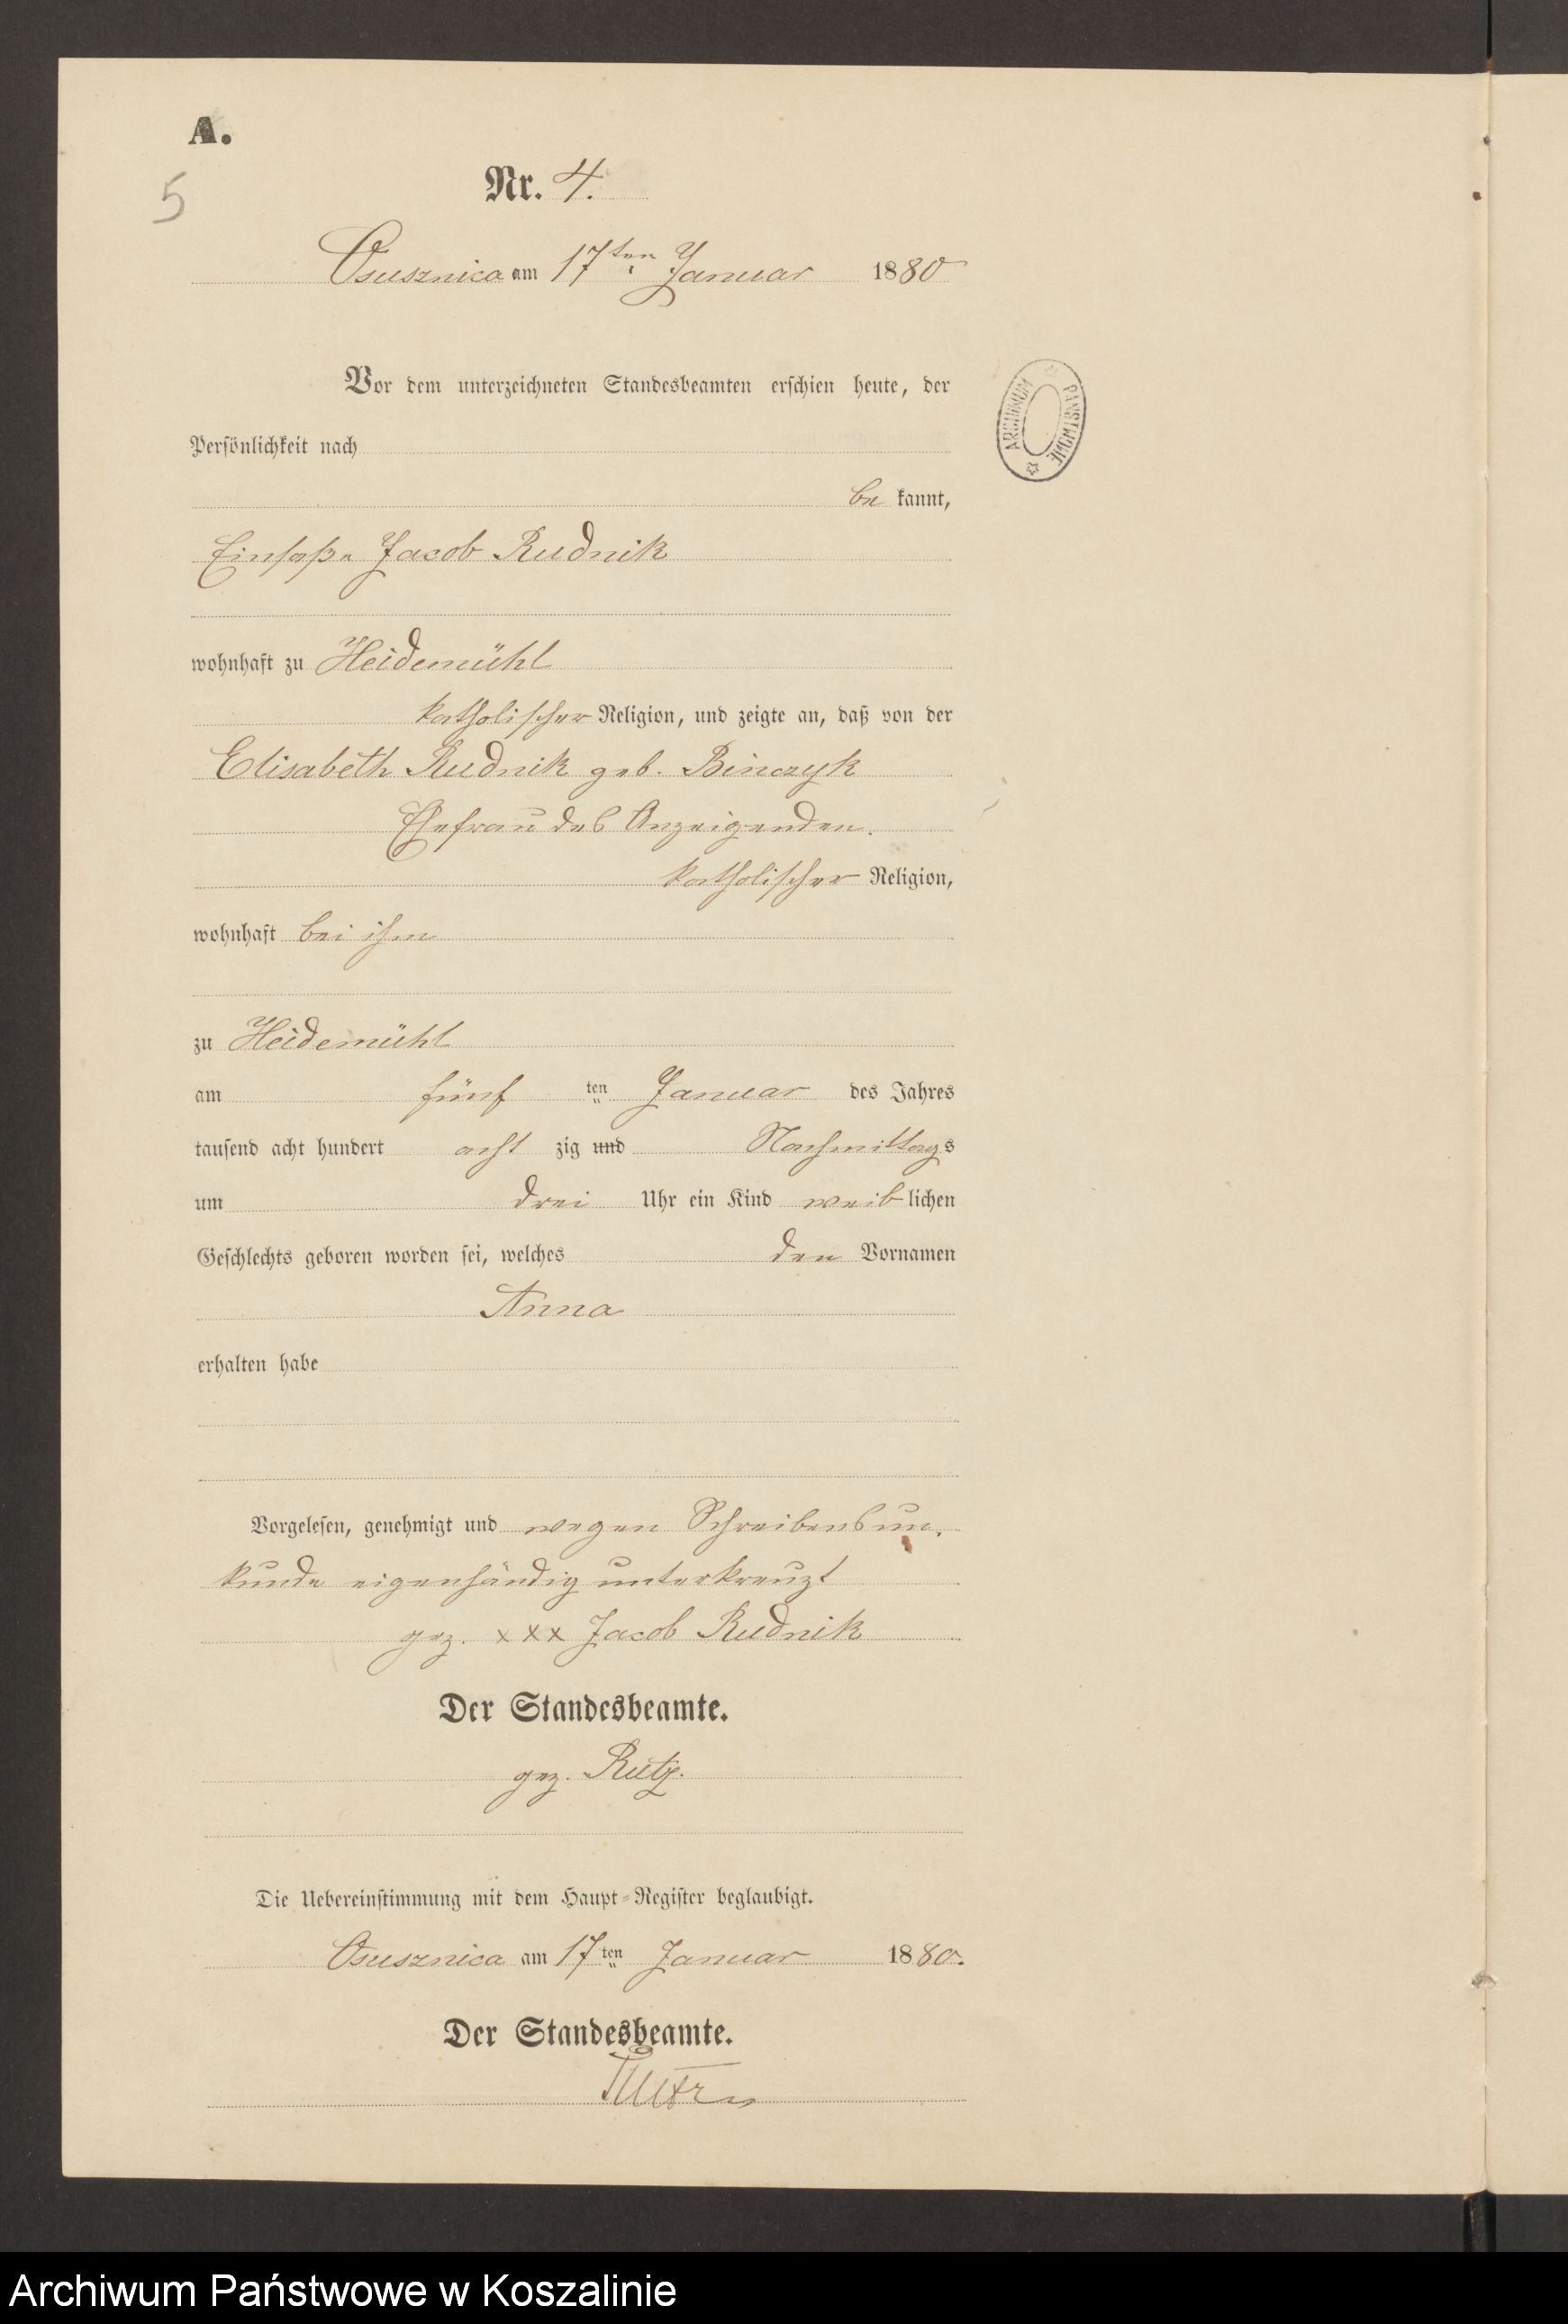 A.
5
Nr. 4.
Osusznica am 17ten Januar 1880
Vor dem unterzeichneten Standesbeamten erschien heute, der
Persönlichkeit nach
be kannt,
Einsaße Jacob Rudnik
wohnhaft zu Heidemühl
katholischer Religion, und zeigte an, daß von der
Elisabeth Rudnik geb. Binczyk
Ehefrau des Anzeigenden.
katholischer Religion,
wohnhaft bei ihm
zu Heidemühl
am fünf ten Januar des Jahres
tausend acht hundert acht zig und Nachmittags
um drei Uhr ein Kind weib lichen
Geschlechts geboren worden sei, welches den Vornamen
Anna
erhalten habe
Vorgelesen, genehmigt und wegen Schreibensun-
kunde eigenhändig unterkreuzt
gez. xxx Jacob Rudnik
Der Standesbeamte.
gez. Rutz.
Die Uebereinstimmung mit dem Haupt-Register beglaubigt.
Osusznica am 17ten Januar 1880.
Der Standesbeamte.
Rutz
ARCHIWUM PAŃSTWOWE
Archiwum Państwowe w Koszalinie